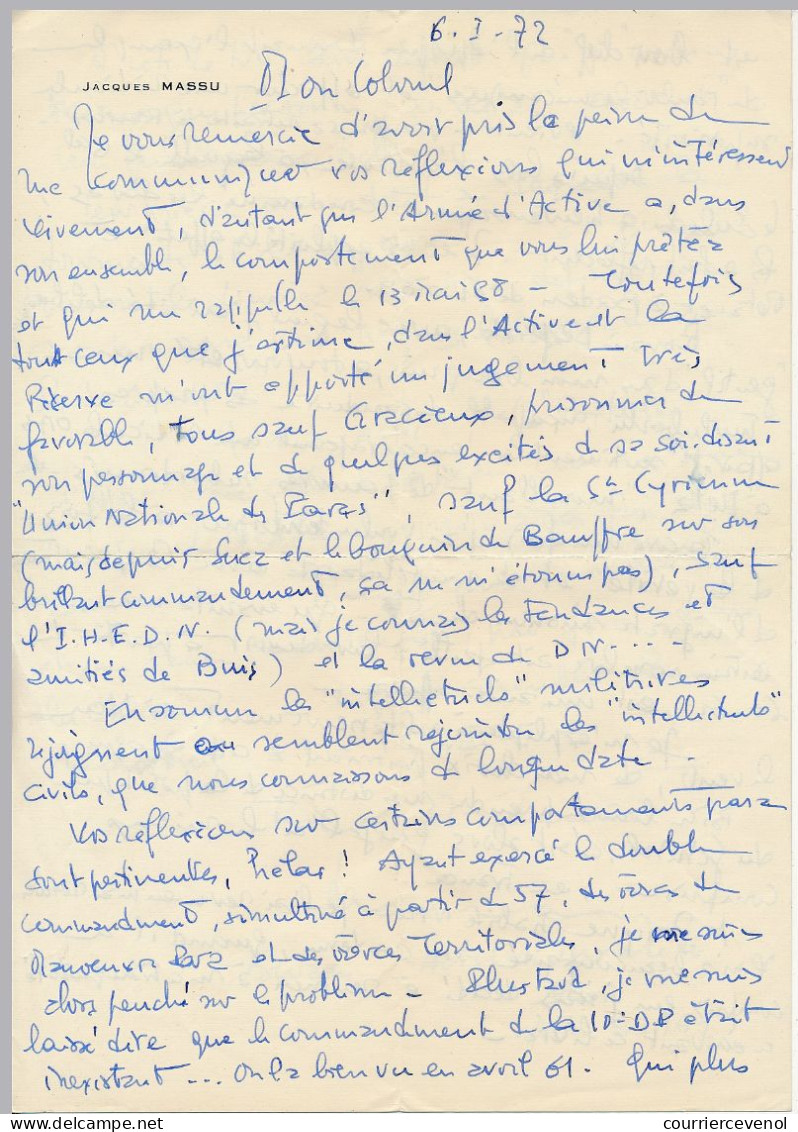 6.I-72
JACQUES MASSU
Mon Colonel
Je vous remercie d'avoir pris la peine de
me communiquer vos réflexions qui m'intéressent
vivement, d'autant que l'Armée d'Active a, dans
son ensemble, le comportement que vous lui prêtez
et qui me rappelle le 13 mai 58 - Toutefois
tout ceux que j'estime, dans l'Active et la
Réserve m'ont apporté un jugement très
favorable, tous sauf Gracieux, prisonnier de
son personnage et de quelques excités de sa soi-disant
"Union Nationale des Paras", sauf la St Cyrienne
(mais depuis Suez et le bouquin de Bauffre sur son
brillant commandement, ça ne m'étonne pas), sauf
l'I.H.E.D.N. (mais je connais les tendances et
amitiés de Buis) et la revue de DN....
En somme les "intellectuels" militaires
rejoignent ou semblent rejoindre les "intellectuels"
civils, que nous connaissons de longue date -
Vos réflexions sur certains comportements paras
sont pertinentes, hélas! Ayant exercé le double
commandment, simultané à partir de 57, des forces de
Manoeuvre et des forces Territoriales, je me suis
alors penché sur le problème - Plus tard, je me suis
laissé dire que le commandment de la 10e DP était
inexistant... On l'a bien vu en avril 61. Qui plus
courriercevenol.com